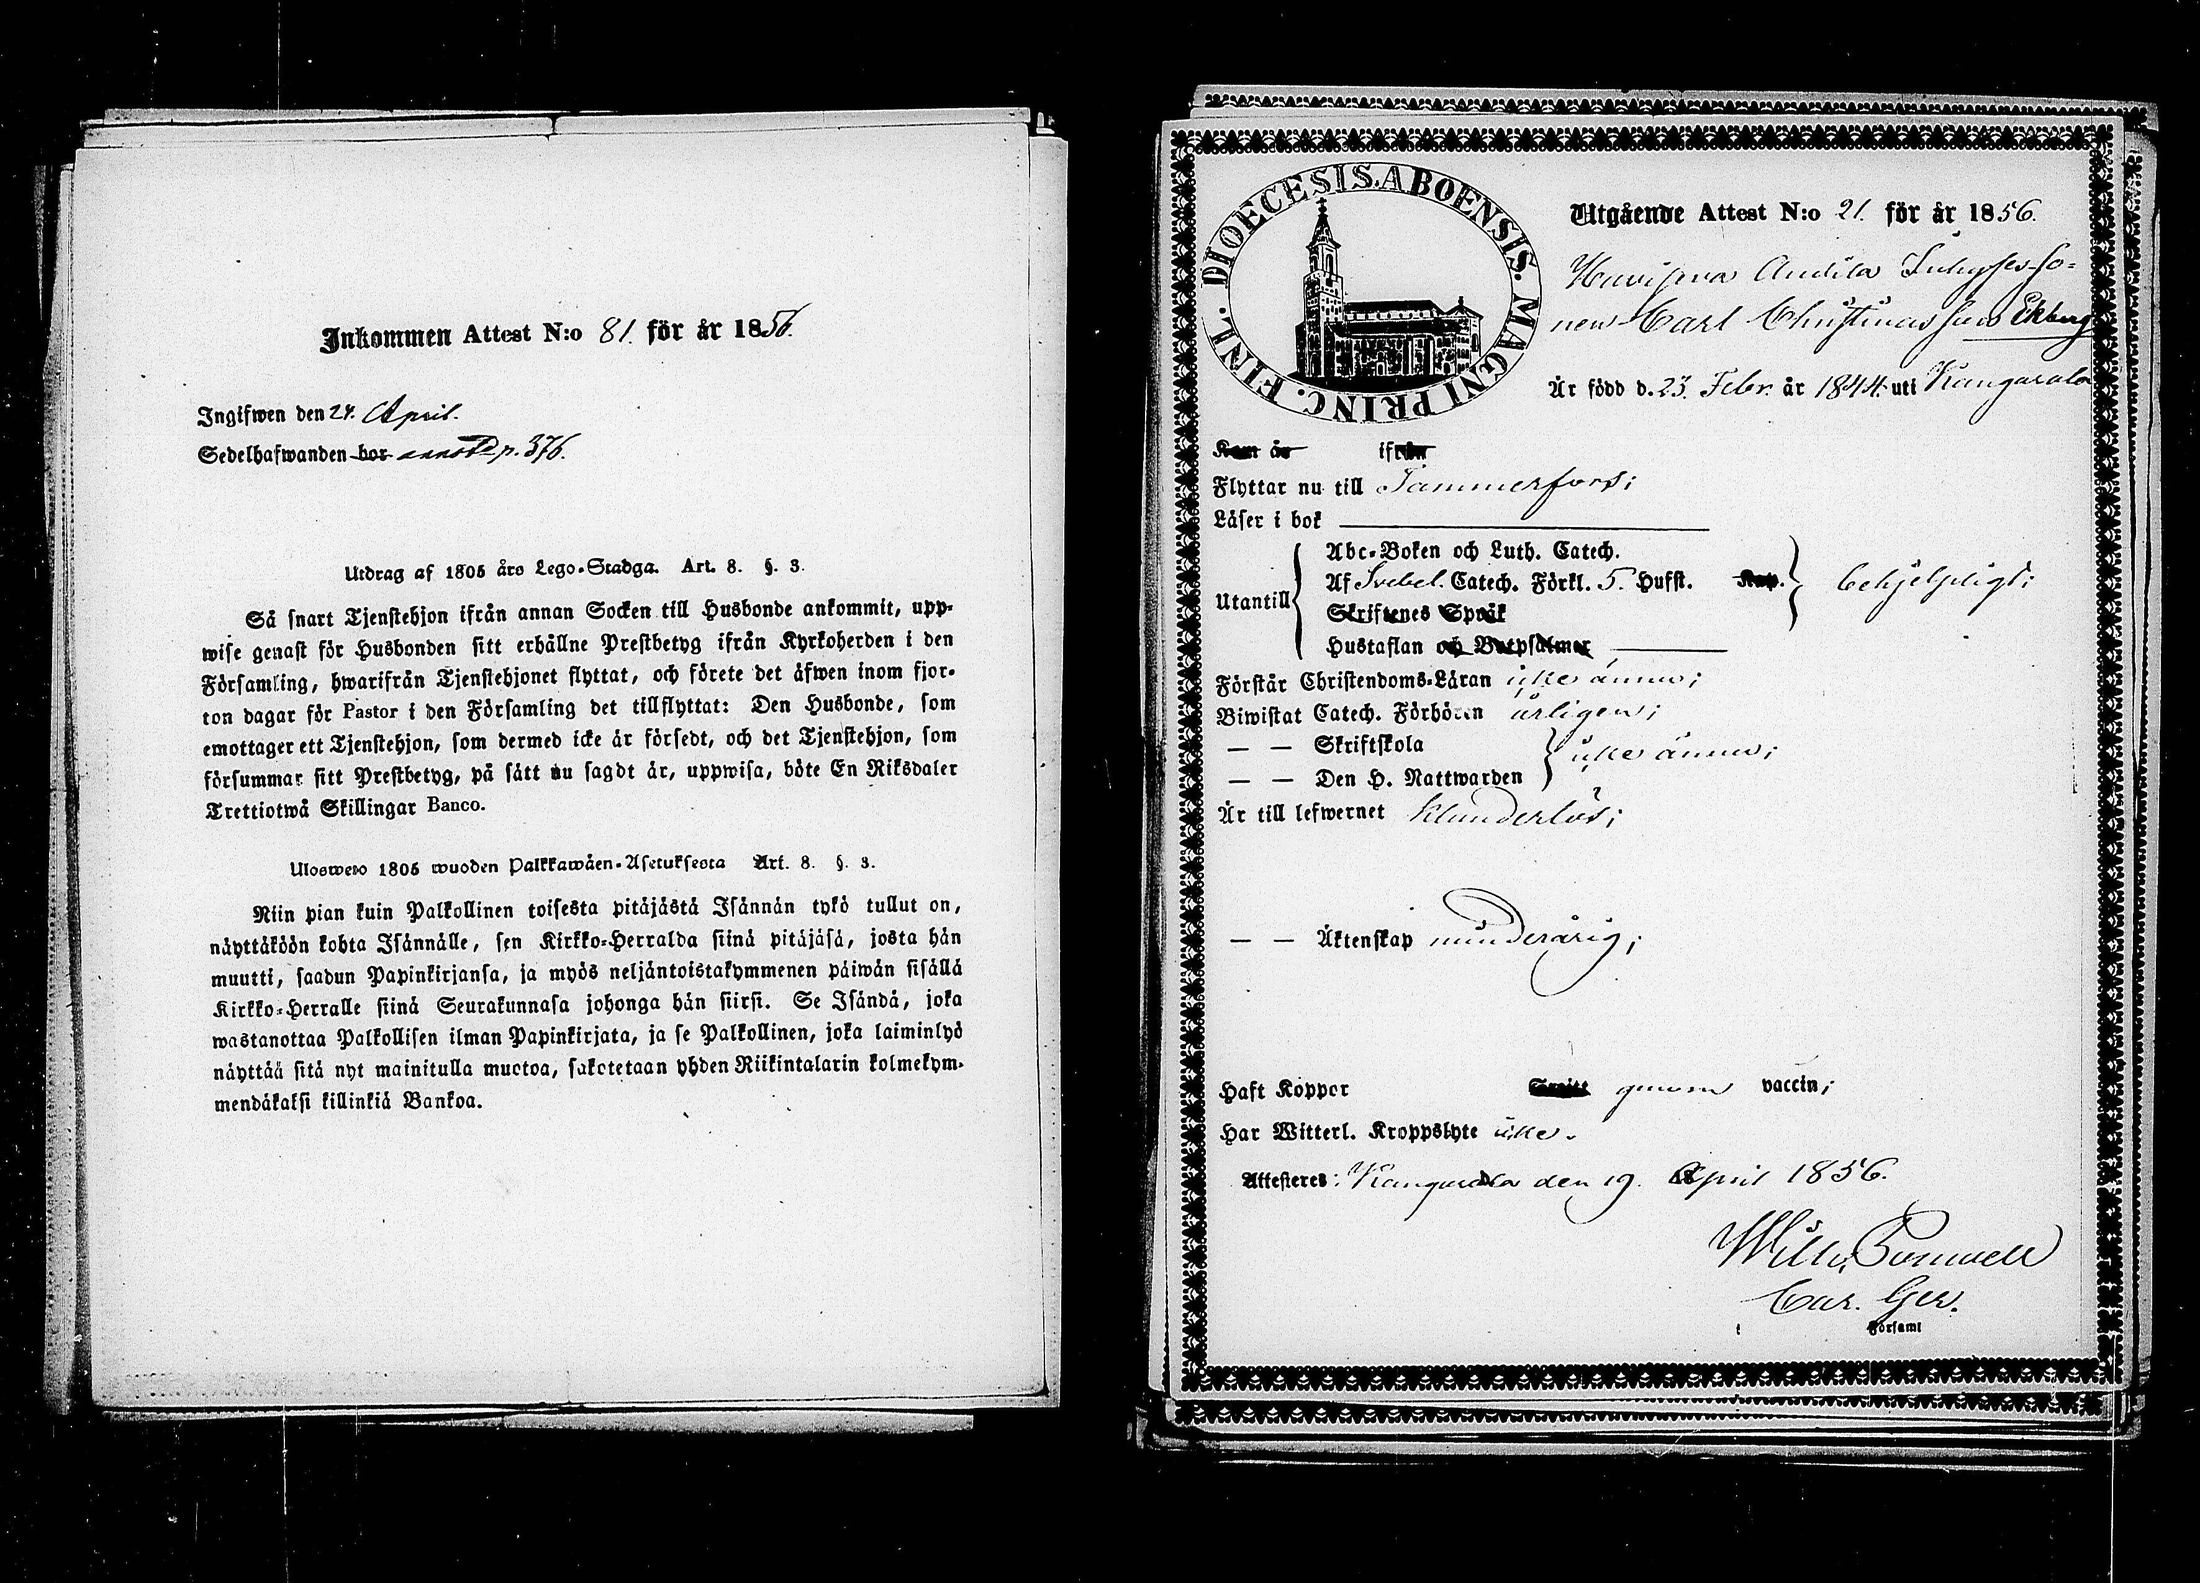 Inkommen Attest N:o 81. för år 1856.
Ingifwen den 24. April.
Sedelhafwanden bor annot. p. 376.
Utdrag af 1805 års Lego-Stadga. Art. 8. §. 3.
Så snart Tjenstehjon ifrån annan Socken till Husbonde ankommit, upp-
wise genast för Husbonden sitt erhållne Prestbetyg ifrån Kyrkoherden i den
Församling, hwarifrån Tjenstehjonet flyttat, och förete det äfwen inom fjor-
ton dagar för Pastor i den Församling det tillflyttat: Den Husbonde, som
emottager ett Tjenstehjon, som dermed icke är försedt, och det Tjenstehjon, som
försummar sitt Prestbetyg, på sätt nu sagdt är, uppwisa, böte En Riksdaler
Trettiotwå Skillingar Banco.
Ulosweto 1805 wuoden Palkkawäen-Asetuksesta Art. 8. §. 3.
Niin pian kuin Palkollinen toisesta pitäjästä Isännän tykö tullut on,
näyttäköön kohta Isännälle, sen Kirkko-Herralda siinä pitäjäsä, josta hän
muutti, saadun Papinkirjansa, ja myös neljäntoistakymmenen päiwän sisällä
Kirkko-Herralle siinä Seurakunnasa johonga hän siirsi. Se Isändä, joka
wastanottaa Palkollisen ilman Papinkirjata, ja se Palkollinen, joka laiminlyö
näyttää sitä nyt mainitulla muotoa, sakotetaan yhden Riikintalarin kolmekym-
mendäkaksi killinkiä Bankoa.
DIOECESIS. ABOENSIS. MAGNI PRINC. FINL.
Utgående Attest N:o 21. för år 1856.
Inhyses-so-
nen Carl Christinas son Ekberg
Är född d. 23. Febr. år 1844. uti Kangasala
Kom år ifrån
Flyttar nu till Tammerfors;
Läser i bok
Abc-Boken och Luth. Catech.
Utantill Af Svebel. Catech. Förkl. 5. Hufst. Kap. behjelpligt;
Skriftenes Språk
Hustaflan och Botpsalmer
Förstår Christendoms-Läran icke ännu;
Biwistat Catech. Förhören årligen;
— — Skriftskola
— — Den H. Nattwarden icke ännu;
Är till lefwernet klanderlös;
— — Äktenskap minderårig;
Haft Koppor genom vaccin;
Har Witterl. Kroppslyte icke.
Attesteres: Kangasala den 19. April 1856.
Wilh.
Församl